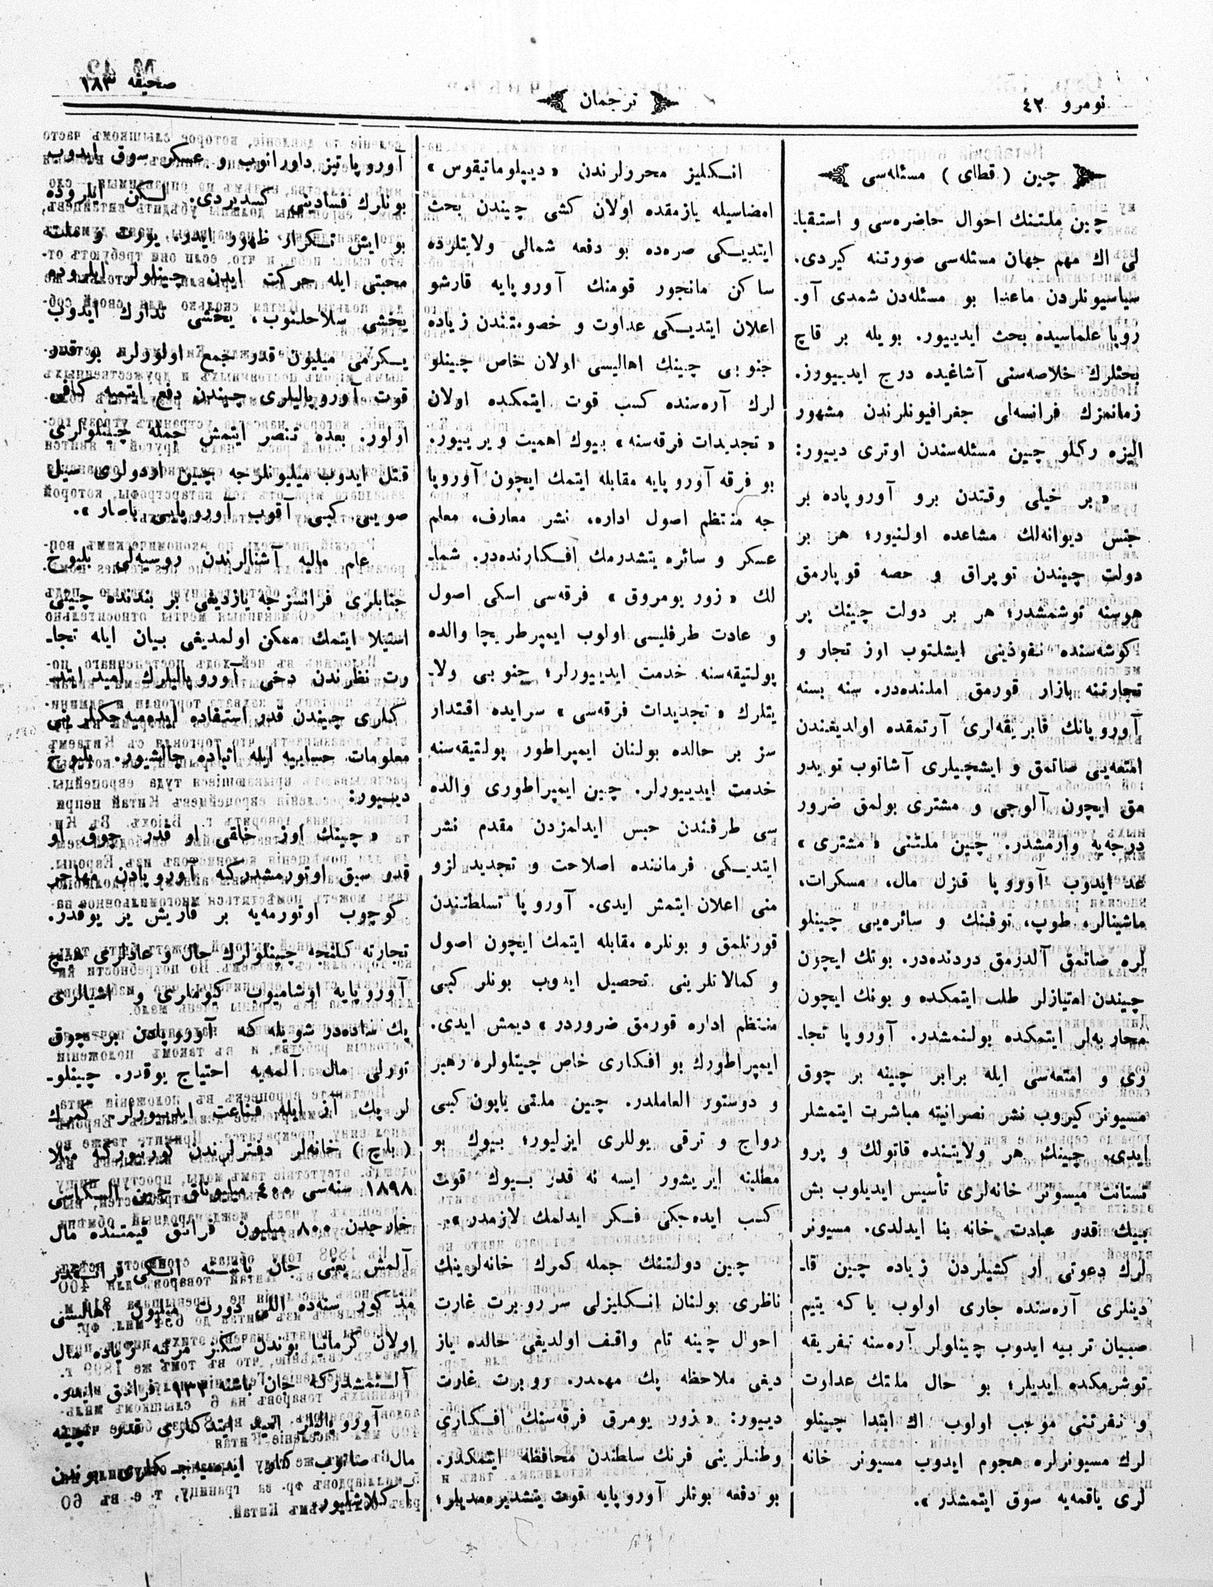 نومرو ٤٢
ترجمان
صحیفه ١٨٣
چین ( قطای ) مسئله‌سی
چین ملتنك احوال حاضره‌سی و استقبا-
لی اك مهم جهان مسئله‌سی صورتنه کیردی.
سیاسیونلردن ماعدا بو مسئله‌دن شمدی آو-
روپا علماسیده بحث ایدییور. بویله بر قاچ
بحثلرك خلاصه‌سنی آشاغیده درج ایدییورز.
زمانمزك فرانسه‌لی جغرافیونلرندن مشهور
الیزه رکلو چین مسئله‌سندن اوتری دییور:
«بر خیلی وقتدن برو آوروپاده بر
جنس دیوانه‌لك مشاعده اولنیور؛ هر بر
دولت چیندن توپراق و حصه قوپارمق
هوسنه توشمشدر؛ هر بر دولت چینك بر
کوشه‌سنده نفوذینی ایشلتوب اوز تجار و
تجارتنه بازار قورمق املنده‌در. سنه بسنه
آوروپانك فابریقه‌لری آرتمقده اولدیغندن
امتعه‌یی صاتمق و ایشچیلری آشاتوب تویدر
مق ایچون آلوچی و مشتری بولمق ضرور
درجه‌یه وارمشدر. چین ملتنی «مشتری»
عد ایدوب آوروپا قزل مال، مسکرات،
ماشینالر، طوپ، توفنك و سائره‌یی چینلو
لره صاتمق آلدزمق دردنده‌در. بونك ایچون
چیندن امتیازلر طلب ایتمکده و بونك ایچون
محاربه‌لر ایتمکده بولنمشدر. آوروپا تجا-
ری و امتعه‌سی ایله برابر چینه بر چوق
مسیونر کیروب نشر نصرانیته مباشرت ایتمشلر
ایدی. چینك هر ولایتنده قاتولك و پرو
تستانت میسونر خانه‌لری تاسیس ایدیلوب بش
بیك قدر عبادت خانه بنا ایدلدی. مسیونر
لرك دعوتی ار کشیلردن زیاده چین قا-
دینلری آره‌سنده جاری اولوب یا که یتیم
صبیان تربیه ایدوب چینلولر آره‌سنه تفریقه
توشرمکده ایدیلر؛ بو حال ملتك عداوت
و نفرتنی موجب اولوب اك ابتدا چینلو
لرك مسیونرلره هجوم ایدوب مسیونر خانه
لری یاقمه‌یه سوق ایتمشدر».
انکلیز محررلرندن «دیپلوماتیقوس»
امضاسیله یازمقده اولان کشی چیندن بحث
ایتدیکی صره‌ده بو دفعه شمالی ولایتلرده
ساکن مانجور قومنك آوروپایه قارشو
اعلان ایتدیکی عداوت و خصومتندن زیاده
جنوبی چینك اهالیسی اولان خاص چینلو
لرك آره‌سنده کسب قوت ایتمکده اولان
«تجدیدات فرقه‌سنه» بیوك اهمیت ویرییور.
بو فرقه آوروپایه مقابله ایتمك ایچون آوروپا
جه منتظم اصول اداره، نشر معارف، معلم
عسکر و سائره یتشدرمك افکارنده‌در. شما-
لك «زور یومروق» فرقه‌سی اسکی اصول
و عادت طرفلیسی اولوب ایمپرطریچا والده
پولتیقه‌سنه خدمت ایدییورلر؛ جنوبی ولا-
یتلرك «تجدیدات فرقه‌سی» سرایده اقتدار
سز بر حالده بولنان ایمپراطور پولتیقه‌سنه
خدمت ایدییورلر. چین ایمپراطوری والده
سی طرفندن حبس ایدلمزدن مقدم نشر
ایتدیکی فرماننده اصلاحت و تجدید لزو
منی اعلان ایتمش ایدی. آوروپا تسلطندن
قورتلمق و بونلره مقابله ایتمك ایچون اصول
و کمالاتلرینی تحصیل ایدوب بونلر کبی
منتظم اداره قورمق ضروردر» دیمش ایدی.
ایمپراطورك بو افکاری خاص چینلولره رهبر
و دوستور العاملدر. چین ملتی یاپون کبی
رواج و ترقی یوللری ایزلیور؛ بیوك بو
مطلبنه ایریشور ایسه نه قدر بیوك قوت
کسب ایده‌جکی فکر ایدلمك لازمدر».
چین دولتنك جمله کمرك خانه‌لرینك
ناظری بولنان انکلیزلی سر روبرت غارت
احوال چینه تام واقف اولدیغی حالده یاز
دیغی ملاحظه پك مهمدر. روبرت غارت
دییور: «زور یومرق فرقه‌سنك افکاری
وطنلرینی فرنك سلطندن محافظه ایتمکدر.
بو دفعه بونلر آوروپایه قوت یتشدیره‌مدیلر؛
آوروپا تیز داورانوب و عسکر سوق ایدوب
بونلرك فسادینی کسدیردی. لکن ایلروده
بو ایش تکرار ظهور ایدر. یورت و ملت
محبتی ایله حرکت ایدن چینلولر ایلروده
یخشی سلاحلنوب، یخشی تدارك ایدوب
یکرمی میلیون قدر جمع اولورلر. بو قدر
قوت آوروپالیلری چیندن دفع ایتمیه کافی
اولور. بعده تنصر ایتمش جمله چینلولری
قتل ایدوب میلیونلرجه چین اردولری سیل
صویی کبی آقوب آوروپایی باصار».
عام مالیه آشنالرندن روسیه‌لی بلیوخ
جنابلری فرانسزجه یازدیغی بر بندنده چینی
استیلا ایتمك ممکن اولمدیغی بیان ایله تجا-
رت نظرندن دخی آوروپالیلرك امید ایتد
کلری چیندن قدر استفاده ایده‌میه‌جکلرینی
معلومات حسابیه ایله اثباده چالشیور. بلیوخ
دییور:
«چینك اوز خلقی او قدر چوق او
قدر سیق اوتورمشدرکه آوروپادن مهاجر
کوچوب اوتورمه‌یه بر قاریش یر یوقدر.
تجارته کلنجه چینلولرك حال و عادلری هیچ
آوروپایه اوشامیوب کیوملری و اشیالری
پك ساده‌در شویله که آوروپادن بر چوق
تورلی مال آلمه‌یه احتیاج یوقدر. چینلو-
لر پك آز ایله قناعت ایدییورلر. کمرك
(باج) خانه‌لر دفترلرندن کورنیورکه مثلا
١٨٩٨ سنه‌سی ٤٠٠ میلیونلق چین اولکاسی
خارجدن ٨٠٠ میلیون فرانق قیمتنده مال
آلمش یعنی جان باشنه ایکی فرانقدر
مذکور سنه‌ده اللی دورت میلیون اهالیسی
اولان کرمانیا بوندن سکز مرتبه زیاده مال
آلتمشدرکه جان باشنه ١٣٣ فرانق ایدر.
آوروپالیلر امید ایتدکلری قدر چینه
مال صاتوب کار ایده‌میه‌جکلری بوندن
آکلاشلیور.